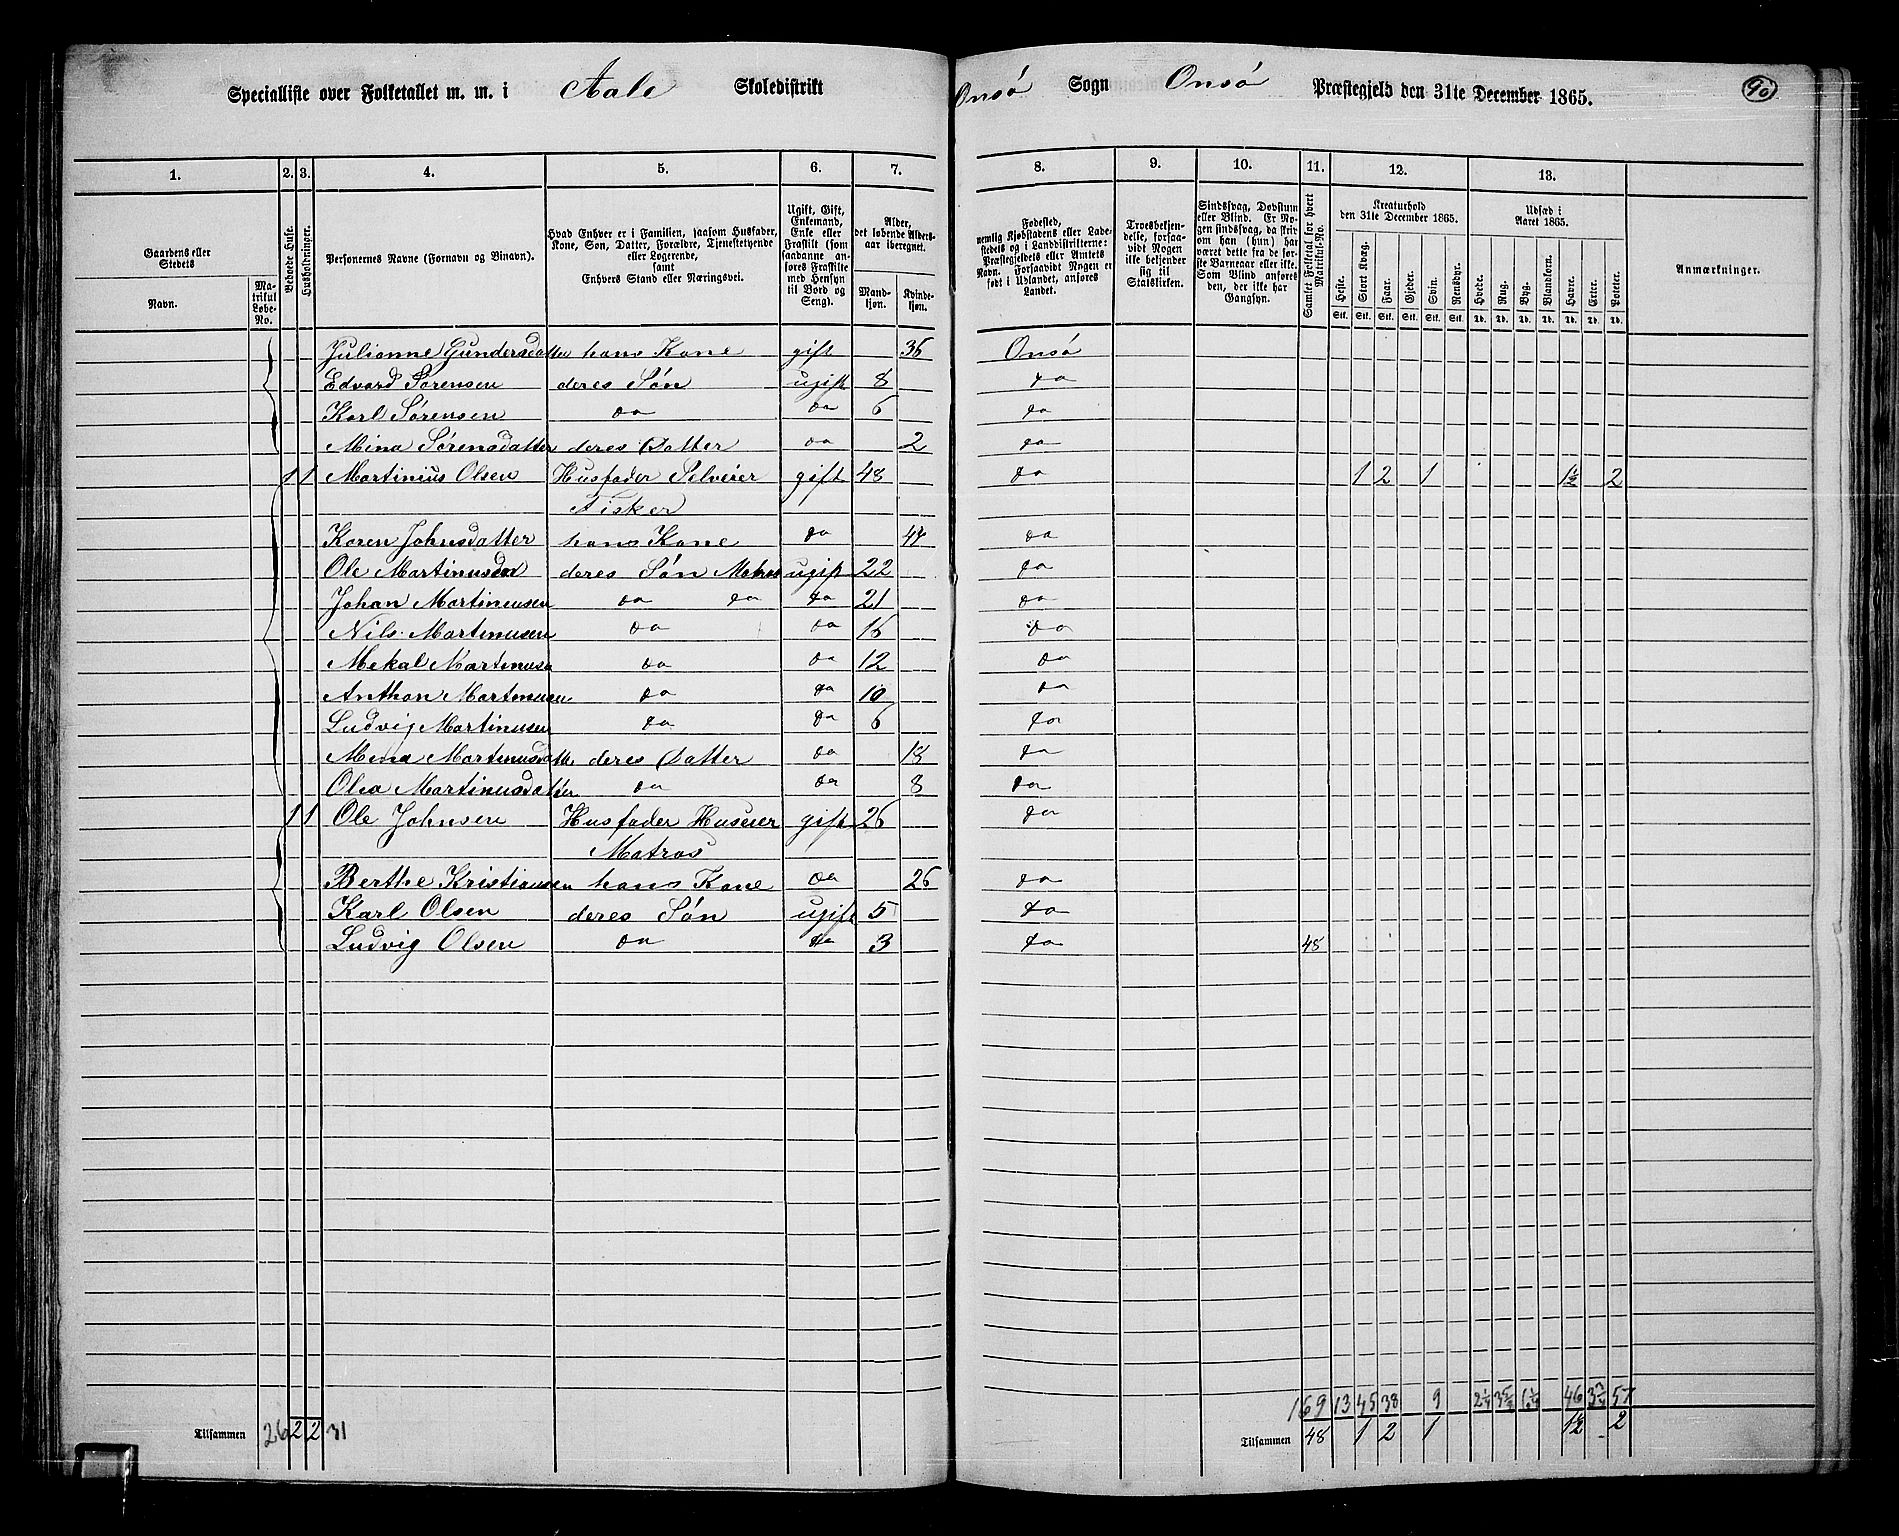 Specialliste over Folketallet m. m. i Aale Skoledistrikt Onsö Sogn Onsö Præstegjeld den 31te December 1865. 90
1. 2. 3. 4. 5. 6. 7. 8. 9. 10. 11. 12. 13.
Gaardens eller Stedets
Navn.
Matrikul Løbe-No.
Beboede Huse.
Husholdninger.
Personernes Navne (Fornavn og Binavn).
Hvad Enhver er i Familien, saasom Husfader, Kone, Søn, Datter, Forældre, Tjenestetyende eller Logerende, samt Enhvers Stand eller Næringsvei.
Ugift, Gift, Enkemand, Enke eller Fraskilt (som saadanne anføres Fraskilte med Hensyn til Bord og Seng).
Alder, det løbende Alders-aar iberegnet.
Mand-kjøn.
Kvinde-kjøn.
Fødested, nemlig Kjøbstadens eller Ladestedets og i Landdistrikterne: Præstegjeldets eller Amtets Navn. Forsaavidt Nogen er født i Udlandet, anføres Landet.
Troesbekjendelse, forsaavidt Nogen ikke bekjender sig til Statskirken.
Sindssvag, Døvstum eller Blind. Er Nogen sindssvag, da skrives om han (hun) har været dette fra de første Barneaar eller ikke. Som Blind anføres den, der ikke har Gangsyn.
Samlet Folketal for hvert Matrikuls-No.
Kreaturhold den 31te December 1865.
Heste. Stort Kvæg. Faar. Gjeder. Svin. Rensdyr.
Stk. Stk. Stk. Stk. Stk. Stk.
Udsæd i Aaret 1865.
Hvede. Rug. Byg. Blandkorn. Havre. Erter. Poteter.
Td. Td. Td. Td. Td. Td. Td.
Anmærkninger.
Julianne Gundersdatter hans Kone gift 36 Onsö
Edvard Sørensen deres Søn ugift 8 do
Karl Sørensen do do 6 do
Mina Sørensdatter deres Datter do 2 do
1 1 Martinius Olsen Husfader Selveier gift 48 do 1 2 1 1½ 2
Fisker
Karen Johnsdatter hans Kone do do
Ole Martinusen deres Søn Matros ugift 22 do
Johan Martinusen do do do 21 do
Nils Martinusen do do 16 do
Mekal Martinusen do do 12 do
Anthon Martinusen do do 10 do
Ludvig Martinusen do do 6 do
Mina Martinusdatter deres Datter do 18 do
Olea Martinusdatter do do 8 do
1 1 Ole Johnsen Husfader Huseier gift 26 do
Matros
Berthe Kristiansen hans Kone do 26 do
Karl Olsen deres Søn ugift 5 do
Ludvig Olsen do do 3 do 48
169 13 45 38 9 46 57
Tilsammen 26 2 2 31 Tilsammen 48 1 2 1 1½ 2